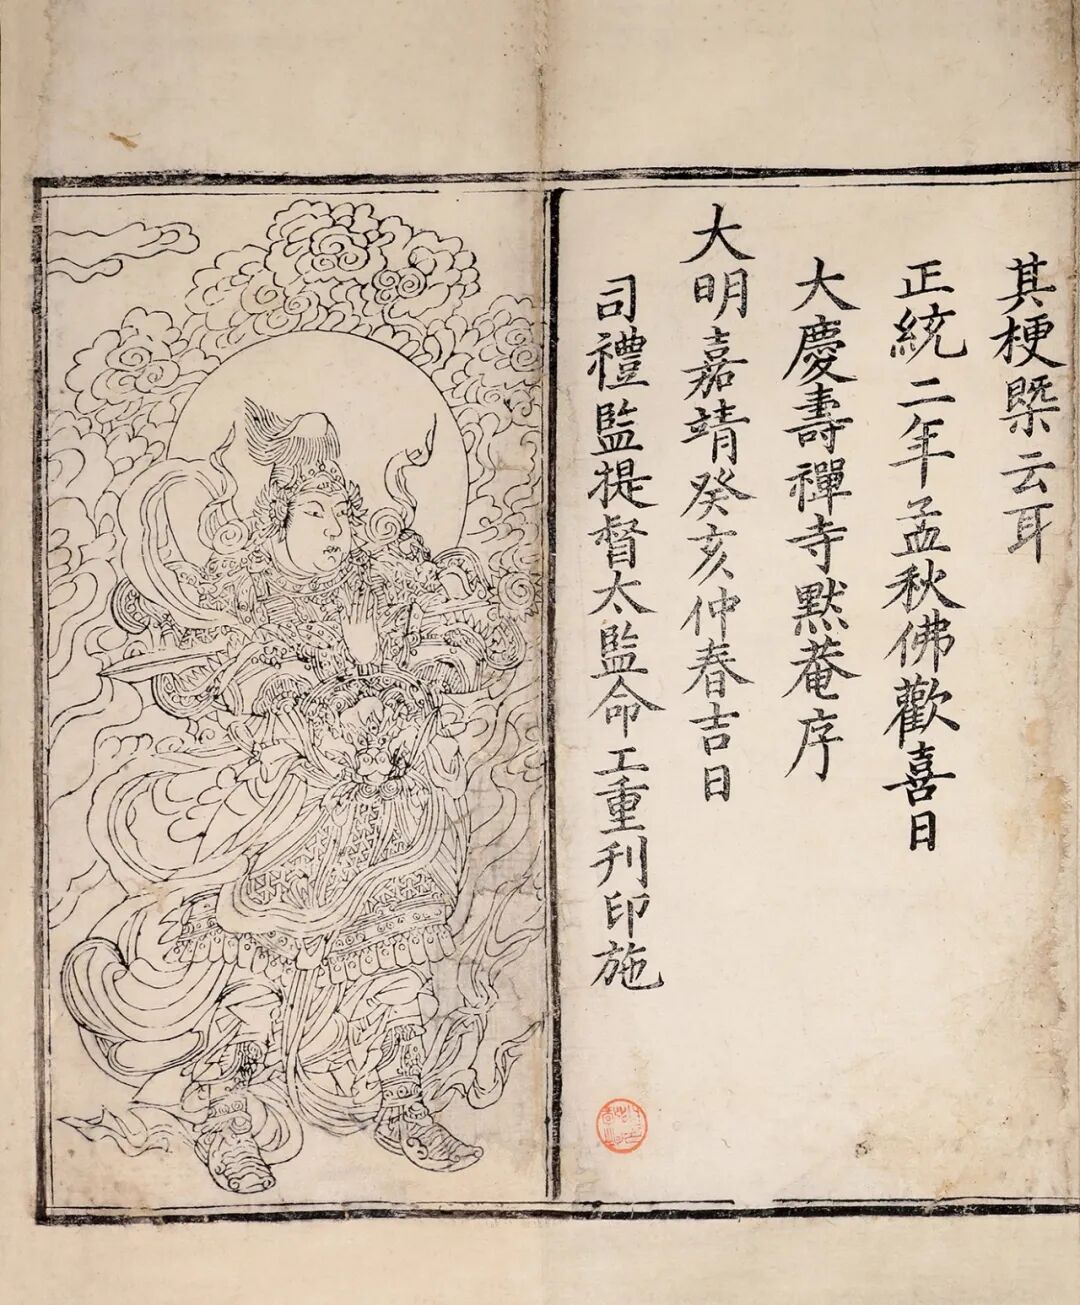 其梗槩云耳
正統二年孟秋佛歡喜日
大慶壽禪寺默菴序
大明嘉靖癸亥仲春吉日
司禮監提督太監命工重刊印施